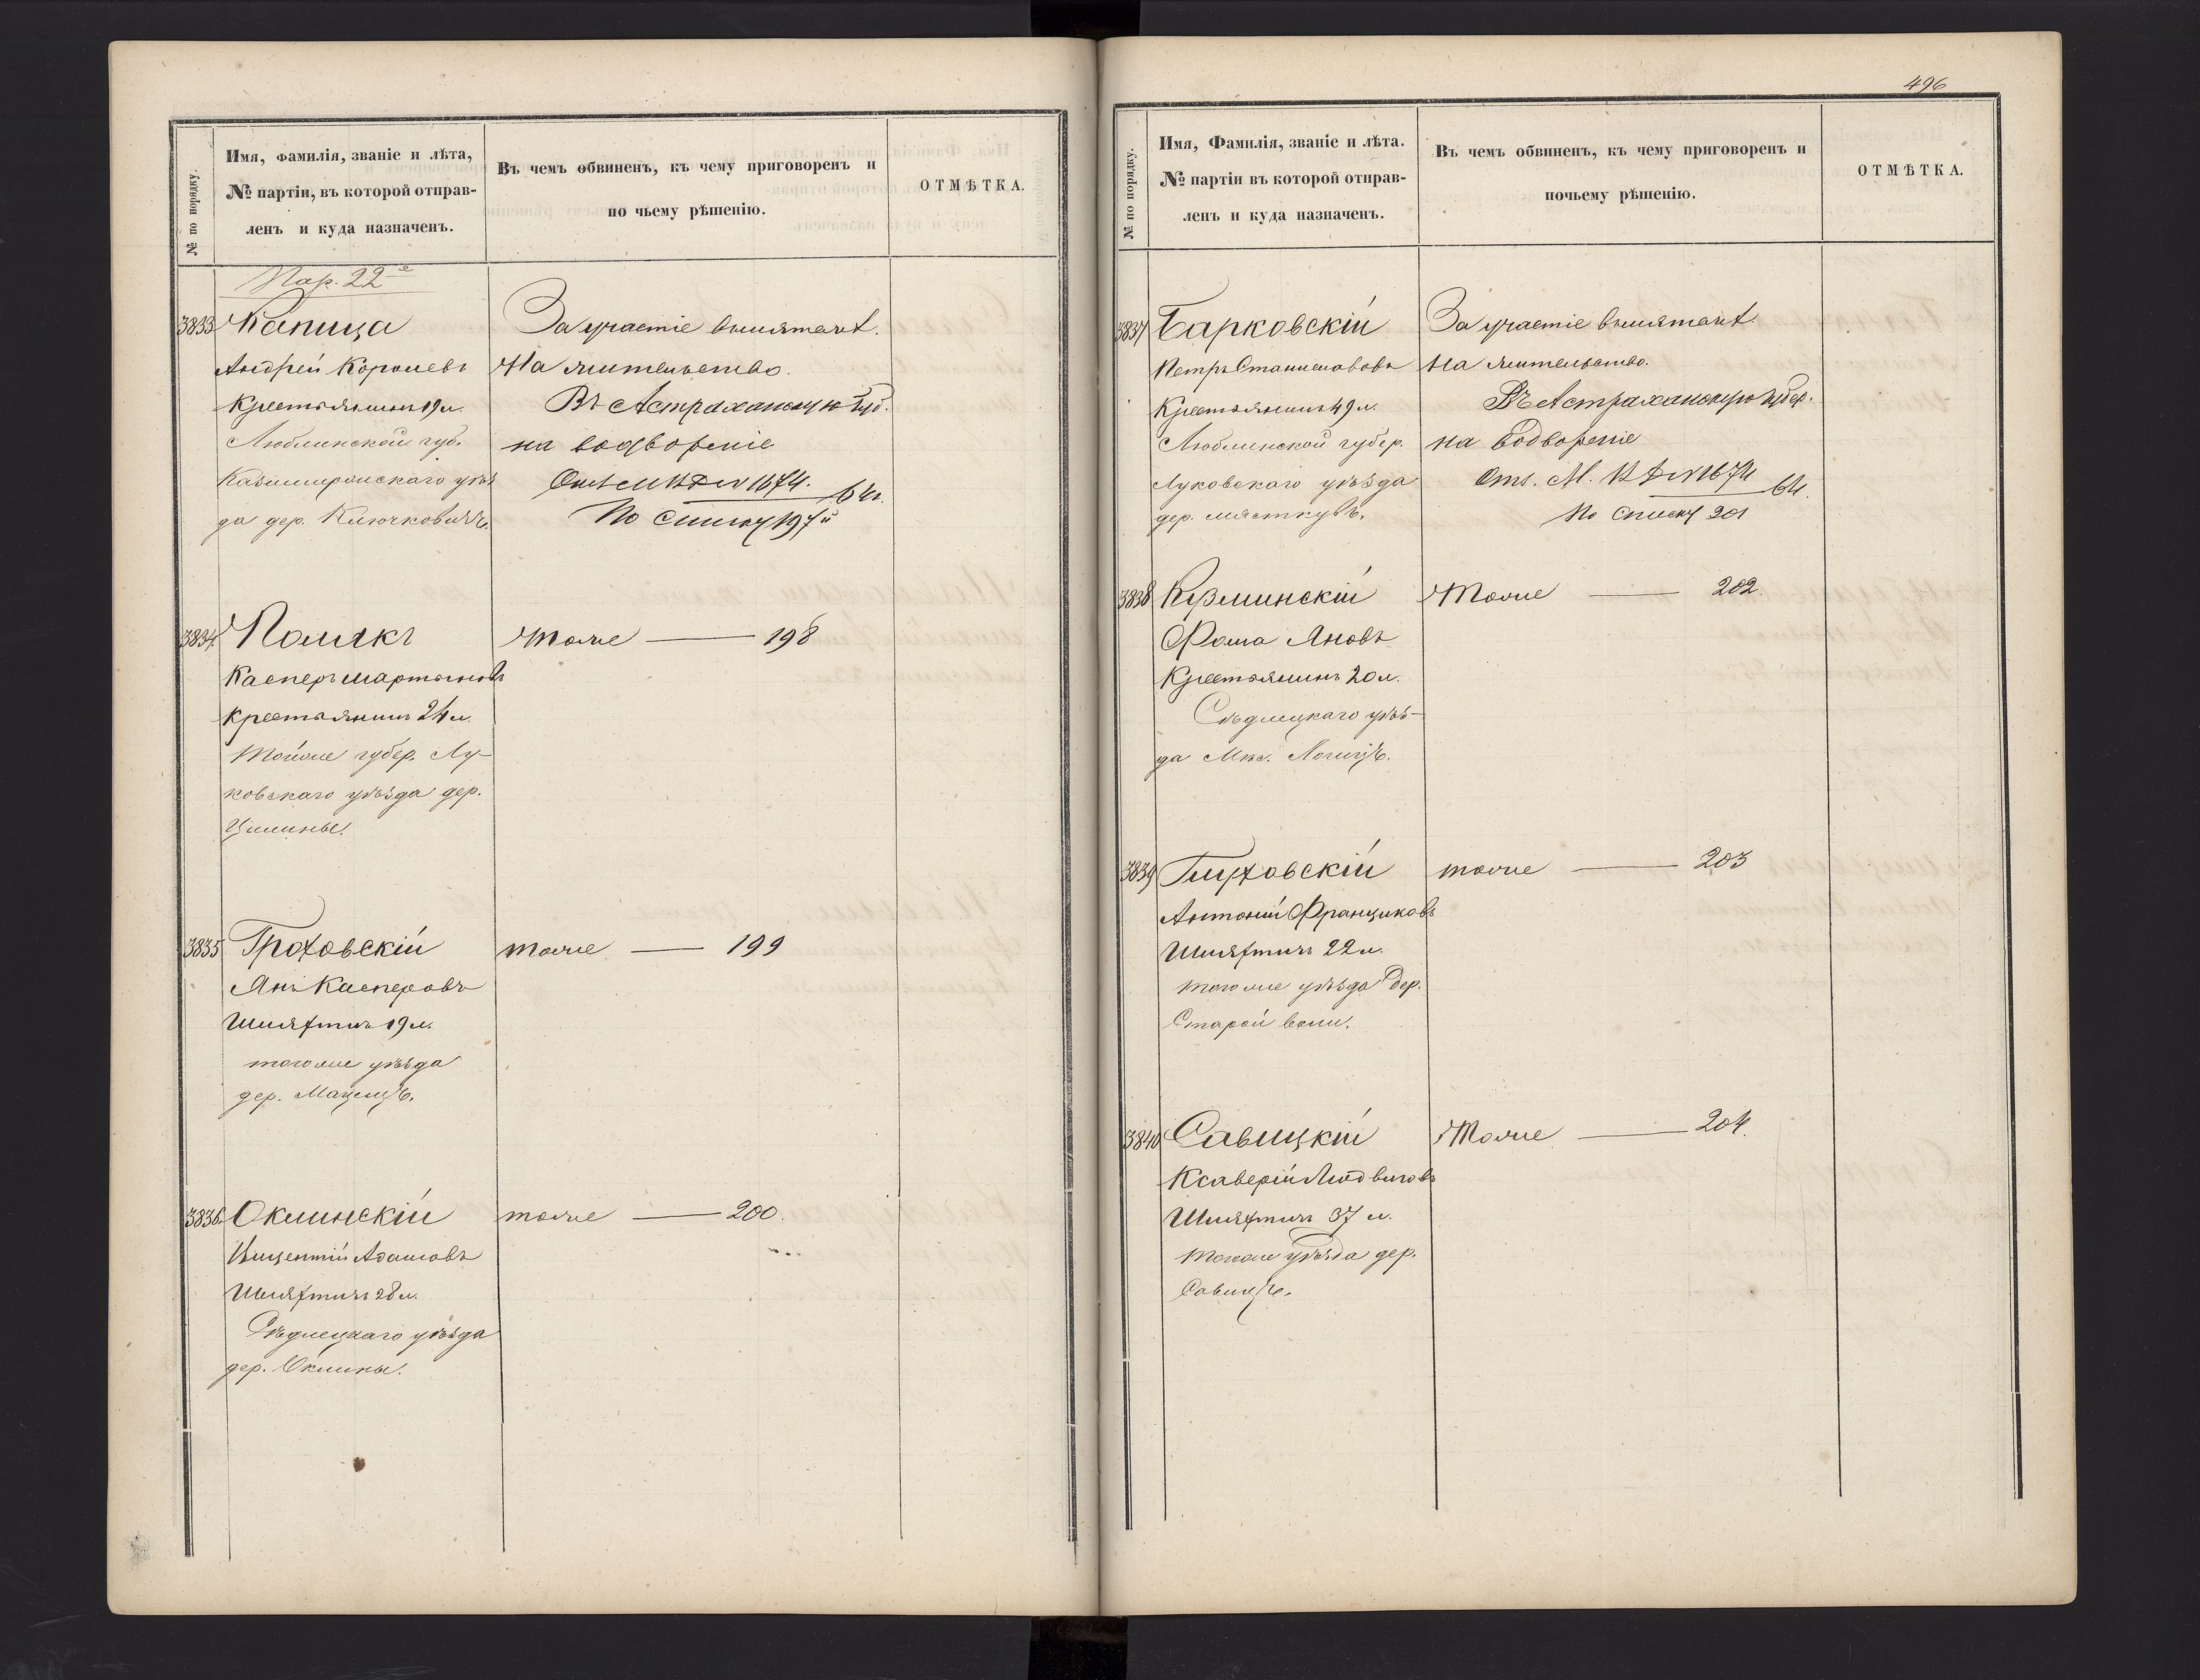 № по порядку.
Имя, фамилія, званіе и лѣта,
№ партіи, въ которой отправ-
ленъ и куда назначенъ.
Въ чемъ обвиненъ, къ чему приговоренъ и
по чьему рѣшенію.
ОТМѢТКА.
Пар. 22е
3833 Капица
Андрей Королевъ
Крестьянинъ 19 л.
Люблинской губ.
Казимирскаго уѣз
да дер.
За участіе въ мятежѣ.
На жительство.
Въ Астраханскую губ.
на водворенie
От. М В Д № 1674.
64 г.
По списку 197й
3834. Полякъ
Касперъ Мартыновъ
Крестьянинъ 24 л.
Тойже губер. Лу-
ковскаго уѣзда дер.
тоже — 198
3835 Гроховскій
Янъ Касперовъ
Шляхтичъ 19 л.
тогоже уѣзда
дер.
тоже — 199
3836. Оклинскій
Вицентій Адамовъ
Шляхтичъ 28 л.
Сѣдлецкаго уѣзда
дер. Оклины.
тоже — 200.
496
№ по порядку.
Имя, Фамилія, званіе и лѣта.
№ партіи въ которой отправ-
ленъ и куда назначенъ.
Въ чемъ обвиненъ, къ чему приговоренъ и
почьему рѣшенію.
ОТМѢТКА.
3837 Барковскій
Петръ Станиславовъ
Крестьянинъ 49 л.
Люблинской губер.
Луковскаго уѣзда
дер. Мясткувъ.
За участіе въ мятежѣ.
На жительство.
Въ Астраханскую губер.
на водворенie
Отн. М. В Д № 1674
64.
По списку 201
3838 Кузминскій
Фома Яновъ
Крестьянинъ 20 л.
Сѣдлецкаго уѣз-
да Мѣс.
Тоже — 202.
3839 Глуховскій
Антоній Францисковъ
Шляхтичъ 22 л.
тогоже уѣзда дер.
Старой воли.
тоже — 203
3840 Савицкій
Ксаверій Людвиговъ
Шляхтичъ 37 л.
тогоже уѣзда дер.
Савицъ.
Тоже — 204.